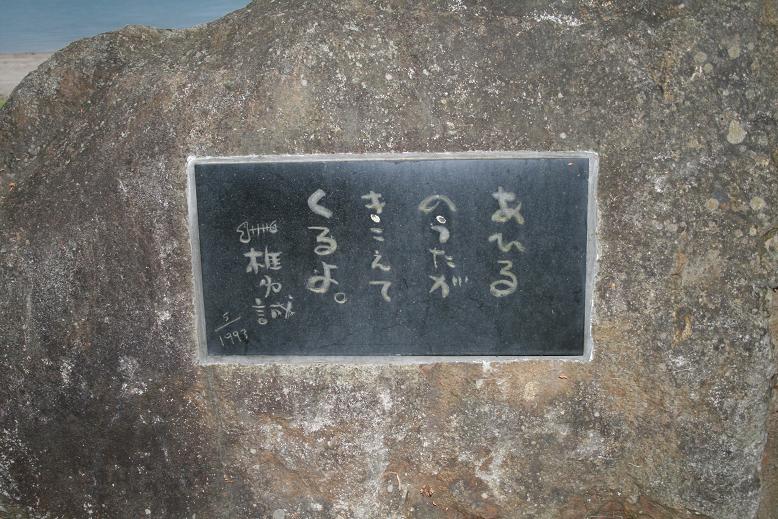 あひる
のうたが
きこえて
くるよ。
椎名誠
5/1993